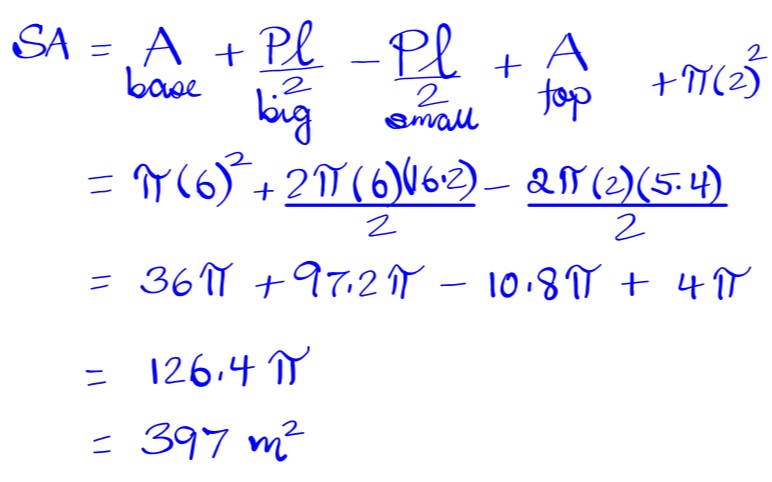 SA = A base + Pl/2 big - Pl/2 small + A top + π(2)²
= π(6)² + 2π(6)(16.2)/2 - 2π(2)(5.4)/2
= 36π + 97.2π - 10.8π + 4π
= 126.4π
= 397 m²